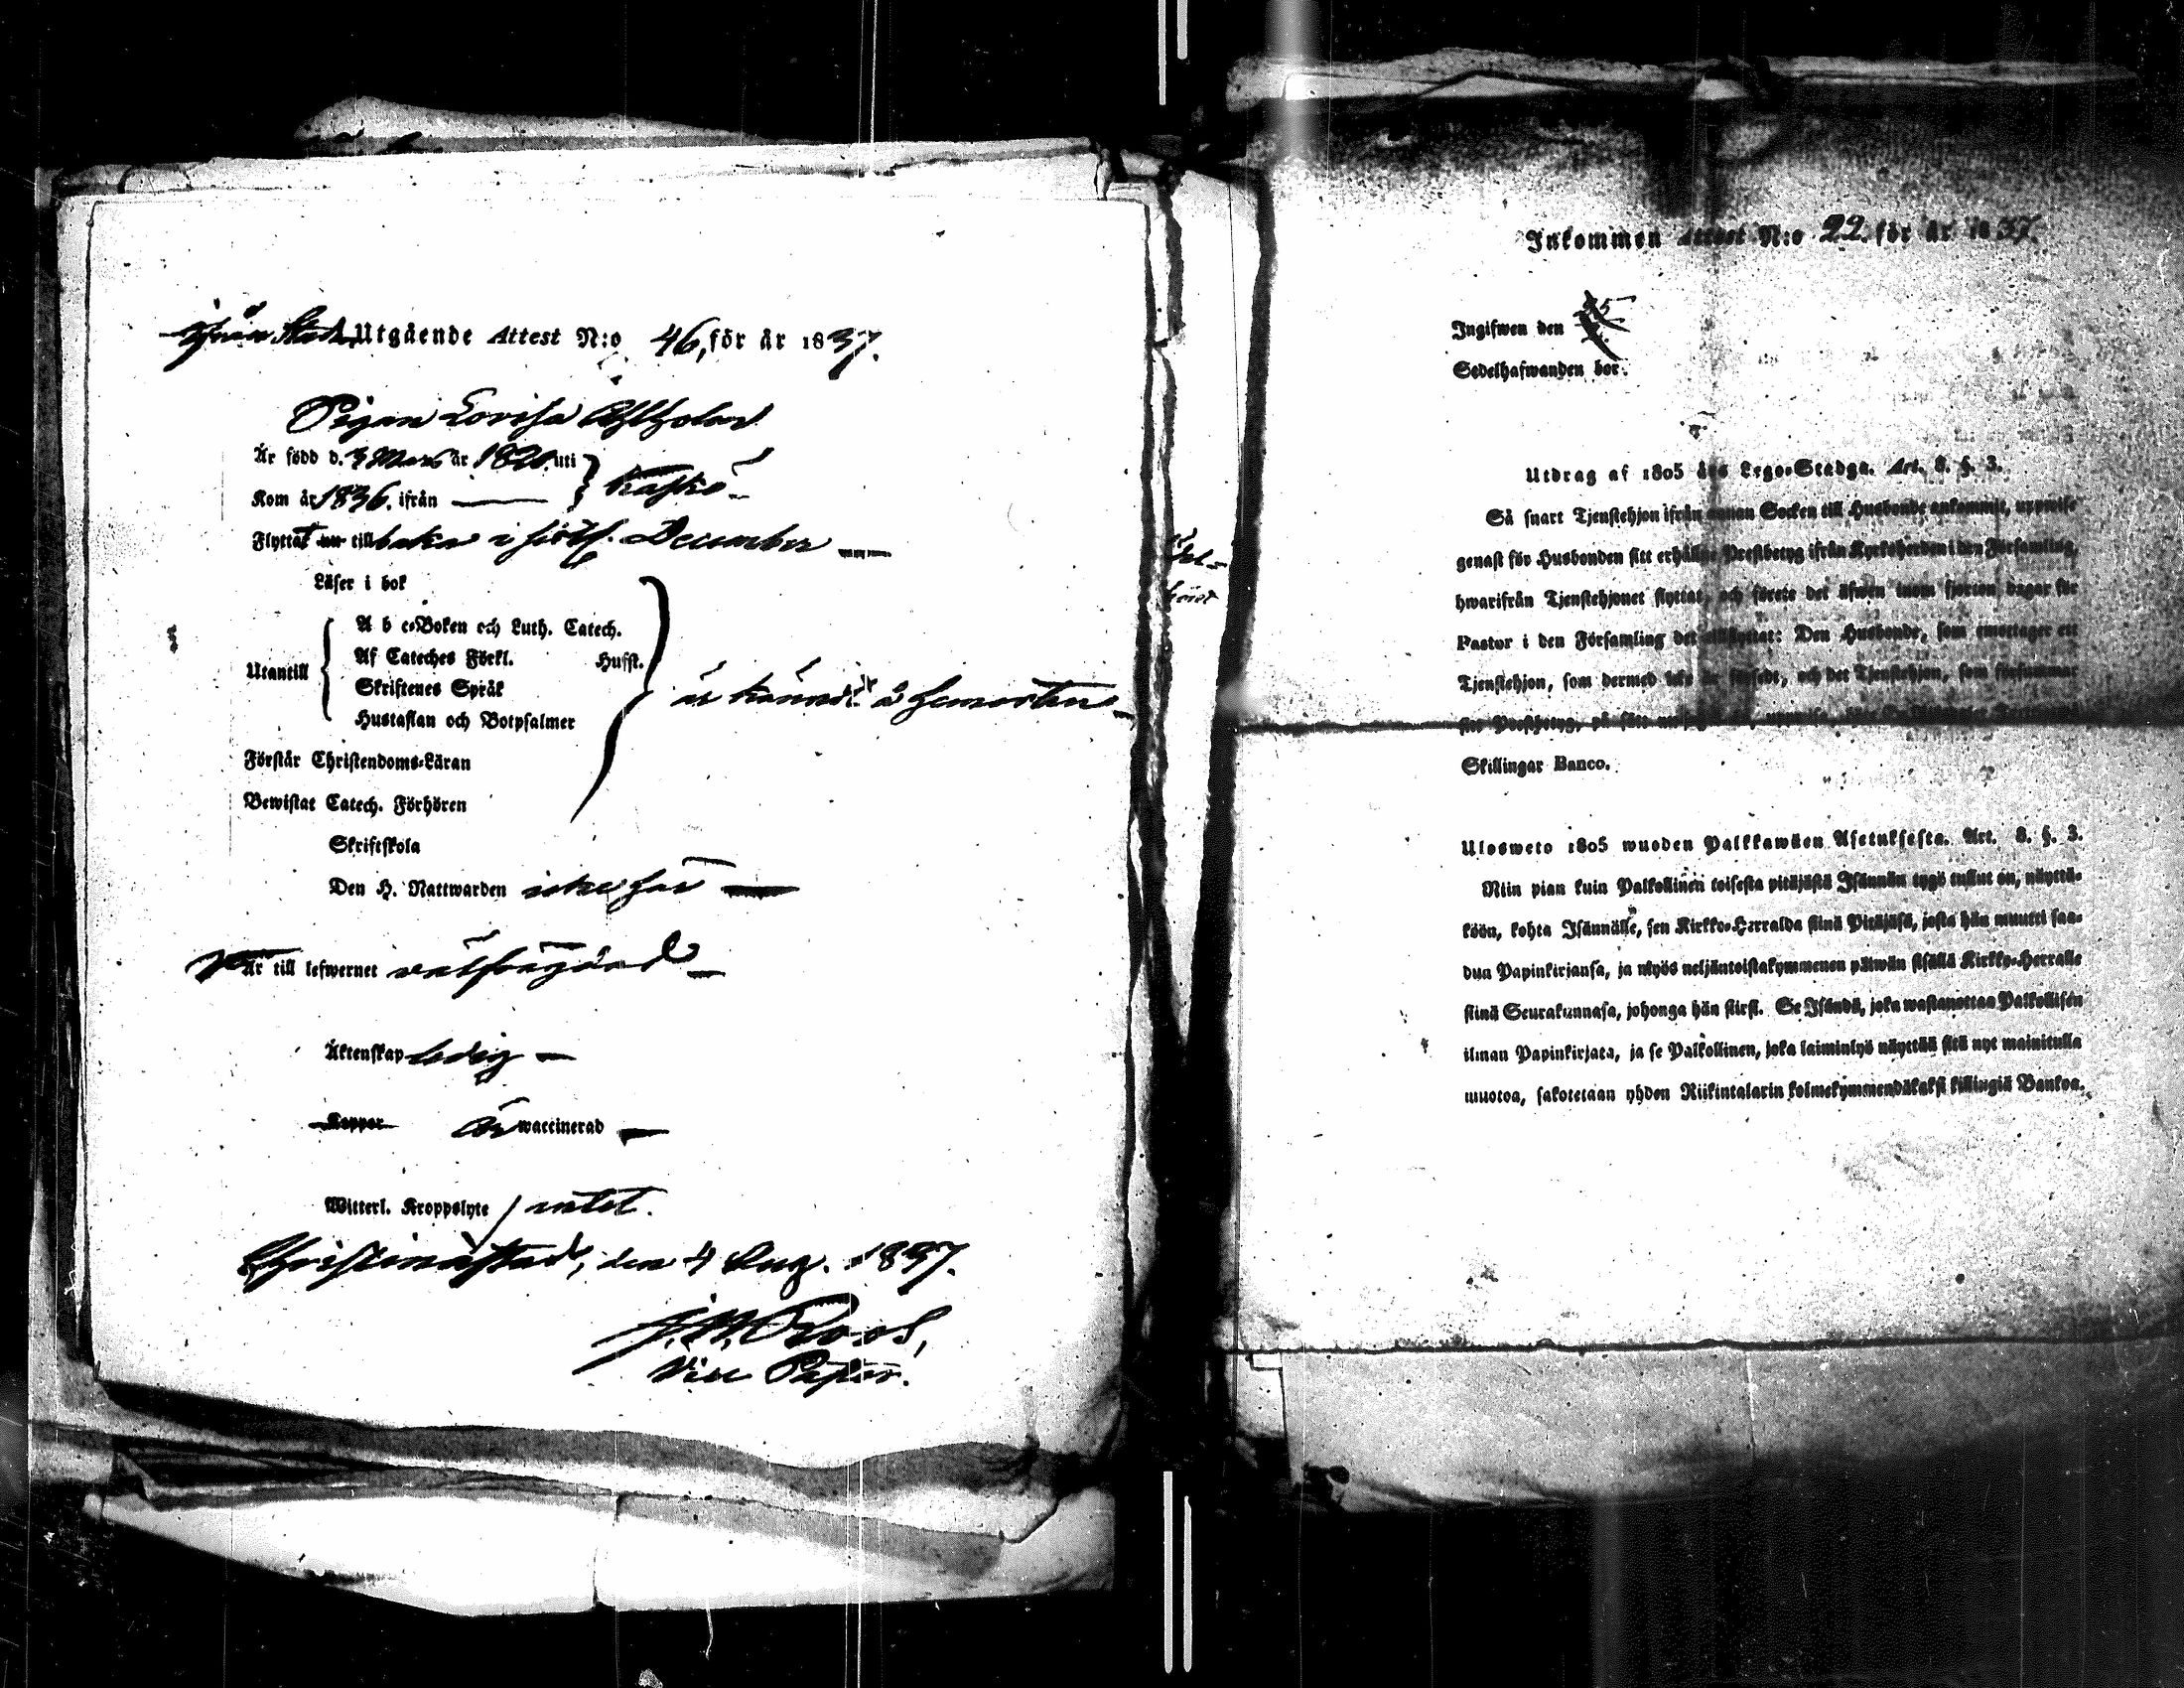 ifrån Stad. Utgående Attest N:o 46, för år 1837.
Pigan Lovisa Ahlholm
Är född d. 3 Mars år 1820. uti
Kom år 1836. ifrån — Kaskö
Flyttat tillbaka i sistl. December —
Läser i bok
A b c-Boken och Luth. Catech.
Af Cateches Förkl. Hufst.
Utantill
Skriftenes Språk
Hustaflan och Botpsalmer
är kändt å hemorten —
Förstår Christendoms-Läran
Bewistat Catech. Förhören
Skriftskola
Den H. Nattwarden icke här —
Är till lefwernet
Äktenskap ledig —
Koppor är waccinerad —
Witterl. Kroppslyte / intet.
Christinæstad, den 4 Aug. 1837.
J. M. Roos,
Vice Pastor.
Inkommen Attest N:o 22. för år 1837.
Ingifwen den
Sedelhafwanden bor.
Utdrag af 1805 års Lego-Stadga. Art. 8. §. 3.
Så snart Tjenstehjon ifrån annan Socken till Husbonde ankommit, uppwise
genast för Husbonden sitt erhållne Prestbetyg ifrån Kyrkoherden i den Församling,
hwarifrån Tjenstehjonet flyttat, och förete det äfwen inom fjorton dagar för
Pastor i den Församling det tillflyttat: Den Husbonde, som emottager ett
Tjenstehjon, som dermed icke är försedt, och det Tjenstehjon, som försummar
sitt Prestbetyg, på sätt
Skillingar Banco.
Ulosweto 1805 wuoden Palkkawäen Asetuksesta. Art. 8. §. 3.
Niin pian kuin Palkollinen toisesta pitäjästä Isännän tygö tullut on, näyttä-
köön, kohta Isännälle, sen Kirkko-Herralda siinä Pitäjäsä, josta hän muutti saa-
dun Papinkirjansa, ja myös neljäntoistakymmenen päiwän sisällä Kirkko-Herralle
siinä Seurakunnasa, johonga hän siirsi. Se Isändä, joka wastanottaa Palkollisen
ilman Papinkirjata, ja se Palkollinen, joka laiminlyö näyttää sitä nyt mainitulla
muotoa, sakotetaan yhden Riikintalarin kolmekymmendäkaksi killingiä Bankoa.